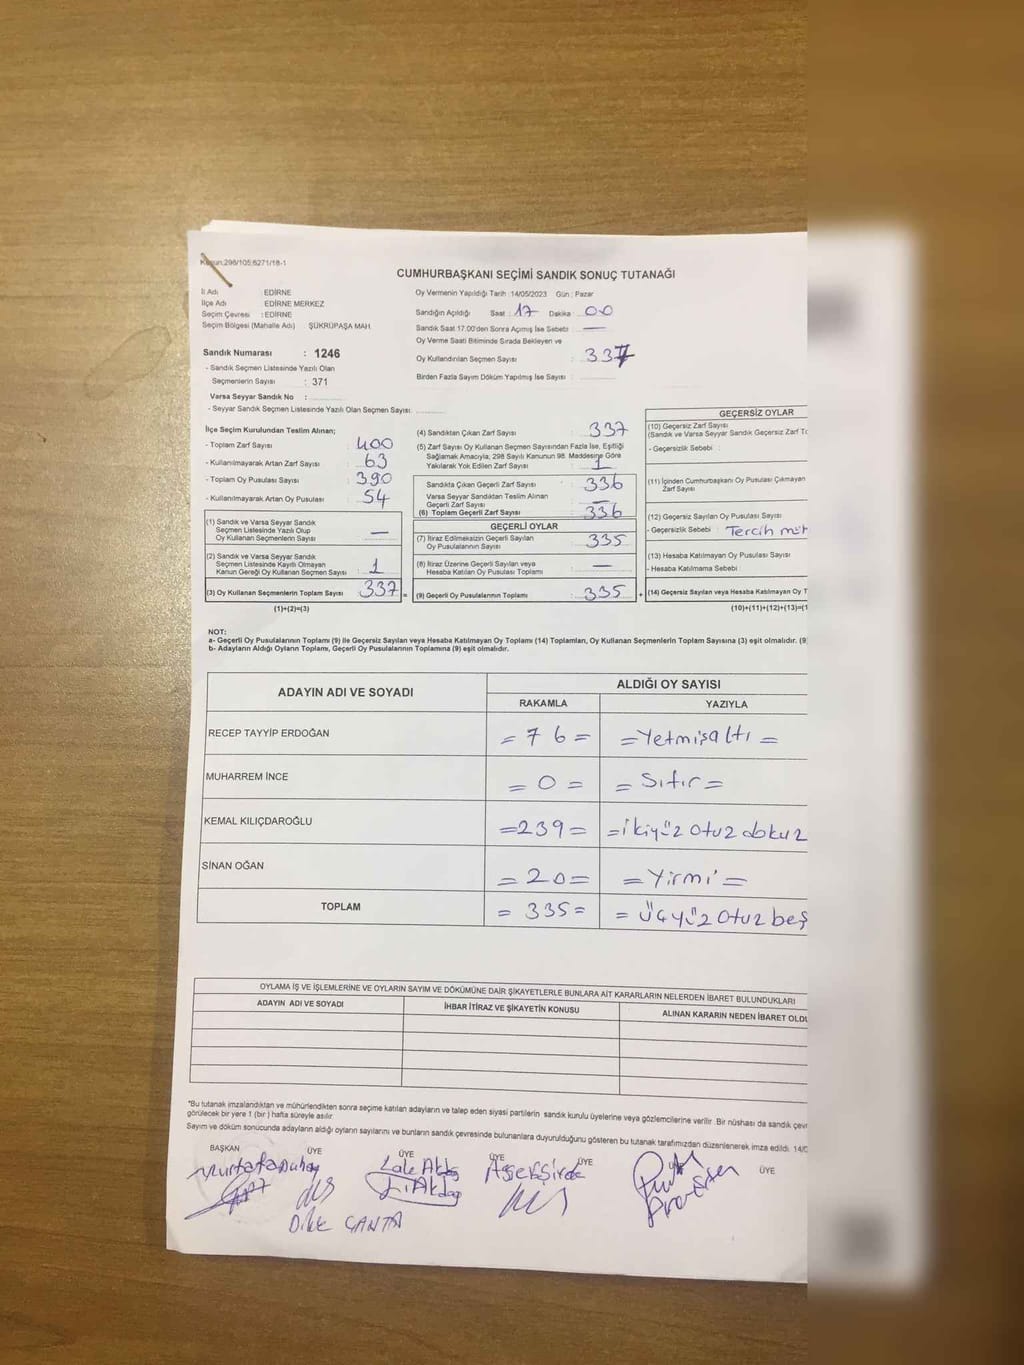 Kanun:298/105;6271/18-1
CUMHURBAŞKANI SEÇİMİ SANDIK SONUÇ TUTANAĞI
İl Adı : EDİRNE
İlçe Adı : EDİRNE MERKEZ
Seçim Çevresi : EDİRNE
Seçim Bölgesi (Mahalle Adı) ŞÜKRÜPAŞA MAH.
Sandık Numarası : 1246
- Sandık Seçmen Listesinde Yazılı Olan
Seçmenlerin Sayısı : 371
Varsa Seyyar Sandık No :
- Seyyar Sandık Seçmen Listesinde Yazılı Olan Seçmen Sayısı
Oy Vermenin Yapıldığı Tarih :14/05/2023 Gün : Pazar
Sandığın Açıldığı Saat : 17 Dakika : 00
Sandık Saat 17.00'den Sonra Açılmış İse Sebebi : —
Oy Verme Saati Bitiminde Sırada Bekleyen ve
Oy Kullandırılan Seçmen Sayısı : 337
Birden Fazla Sayım Döküm Yapılmış İse Sayısı :
İlçe Seçim Kurulundan Teslim Alınan;
- Toplam Zarf Sayısı : 400
- Kullanılmayarak Artan Zarf Sayısı : 63
- Toplam Oy Pusulası Sayısı : 390
- Kullanılmayarak Artan Oy Pusulası : 54
(1) Sandık ve Varsa Seyyar Sandık
Seçmen Listesinde Yazılı Olup
Oy Kullanan Seçmenlerin Sayısı : —
(2) Sandık ve Varsa Seyyar Sandık
Seçmen Listesinde Kayıtlı Olmayan
Kanun Gereği Oy Kullanan Seçmen Sayısı : 1
(3) Oy Kullanan Seçmenlerin Toplam Sayısı : 337 =
(1)+(2)=(3)
(4) Sandıktan Çıkan Zarf Sayısı : 337
(5) Zarf Sayısı Oy Kullanan Seçmen Sayısından Fazla İse, Eşitliği
Sağlamak Amacıyla, 298 Sayılı Kanunun 98. Maddesine Göre
Yakılarak Yok Edilen Zarf Sayısı : 1
Sandıkta Çıkan Geçerli Zarf Sayısı : 336
Varsa Seyyar Sandıktan Teslim Alınan
Geçerli Zarf Sayısı :
(6) Toplam Geçerli Zarf Sayısı : 336
GEÇERLİ OYLAR
(7) İtiraz Edilmeksizin Geçerli Sayılan
Oy Pusulalarının Sayısı : 335
(8) İtiraz Üzerine Geçerli Sayılan veya
Hesaba Katılan Oy Pusulası Toplamı : —
(9) Geçerli Oy Pusulalarının Toplamı : 335 +
GEÇERSİZ OYLAR
(10) Geçersiz Zarf Sayısı
(Sandık ve Varsa Seyyar Sandık Geçersiz Zarf
- Geçersizlik Sebebi :
(11) İçinden Cumhurbaşkanı Oy Pusulası Çıkmayan
Zarf Sayısı
(12) Geçersiz Sayılan Oy Pusulası Sayısı
- Geçersizlik Sebebi : Tercih
(13) Hesaba Katılmayan Oy Pusulası Sayısı
- Hesaba Katılmama Sebebi :
(14) Geçersiz Sayılan veya Hesaba Katılmayan Oy T
(10)+(11)+(12)+(13)=(1
NOT:
a- Geçerli Oy Pusulalarının Toplamı (9) ile Geçersiz Sayılan veya Hesaba Katılmayan Oy Toplamı (14) Toplamları, Oy Kullanan Seçmenlerin Toplam Sayısına (3) eşit olmalıdır. (9
b- Adayların Aldığı Oyların Toplamı, Geçerli Oy Pusulalarının Toplamına (9) eşit olmalıdır.
ADAYIN ADI VE SOYADI ALDIĞI OY SAYISI
RAKAMLA YAZIYLA
RECEP TAYYİP ERDOĞAN = 76 = = Yetmişaltı =
MUHARREM İNCE = 0 = = Sıfır =
KEMAL KILIÇDAROĞLU = 239 = = ikiyüz otuz dokuz
SİNAN OĞAN = 20 = = Yirmi =
TOPLAM = 335 = = Üçyüz Otuz beş
OYLAMA İŞ VE İŞLEMLERİNE VE OYLARIN SAYIM VE DÖKÜMÜNE DAİR ŞİKAYETLERLE BUNLARA AİT KARARLARIN NELERDEN İBARET BULUNDUKLARI
ADAYIN ADI VE SOYADI İHBAR İTİRAZ VE ŞİKAYETİN KONUSU ALINAN KARARIN NEDEN İBARET OLDU
*Bu tutanak imzalandıktan ve mühürlendikten sonra seçime katılan adayların ve talep eden siyasi partilerin sandık kurulu üyelerine veya gözlemcilerine verilir. Bir nüshası da sandık çevr
görülecek bir yere 1 (bir) hafta süreyle asılır.
Sayım ve döküm sonucunda adayların aldığı oyların sayılarını ve bunların sandık çevresinde bulunanlara duyurulduğunu gösteren bu tutanak tarafımızdan düzenlenerek imza edildi. 14/0
BAŞKAN ÜYE ÜYE ÜYE ÜYE ÜYE
Lale Akdağ
Dilek ÇANTA